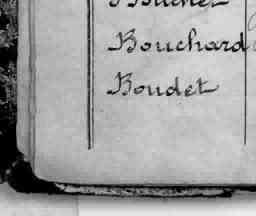 Bouchard
Boudet